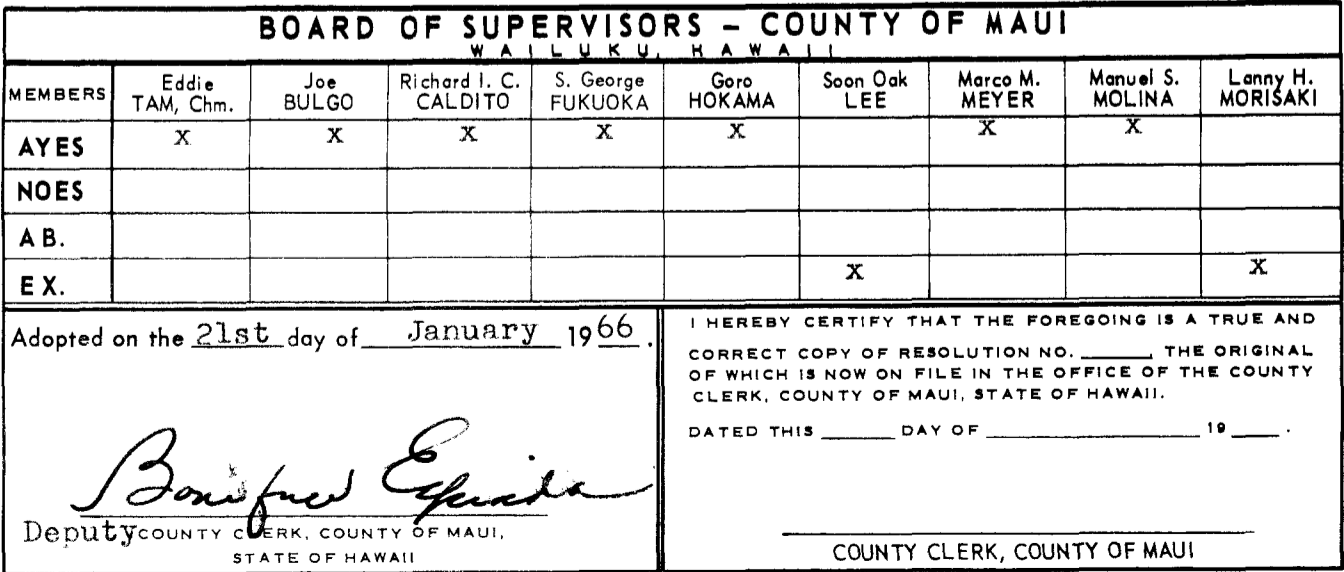 BOARD OF SUPERVISORS – COUNTY OF MAUI
WAILUKU, HAWAII
MEMBERS Eddie TAM, Chm. Joe BULGO Richard I. C. CALDITO S. George FUKUOKA Goro HOKAMA Soon Oak LEE Marco M. MEYER Manuel S. MOLINA Lanny H. MORISAKI
AYES X X X X X X X
NOES
AB.
EX. X X
Adopted on the 21st day of January 1966.
Deputy COUNTY CLERK, COUNTY OF MAUI,
STATE OF HAWAII
I HEREBY CERTIFY THAT THE FOREGOING IS A TRUE AND
CORRECT COPY OF RESOLUTION NO. ______, THE ORIGINAL
OF WHICH IS NOW ON FILE IN THE OFFICE OF THE COUNTY
CLERK, COUNTY OF MAUI, STATE OF HAWAII.
DATED THIS ______ DAY OF ______ 19 ____ .
COUNTY CLERK, COUNTY OF MAUI